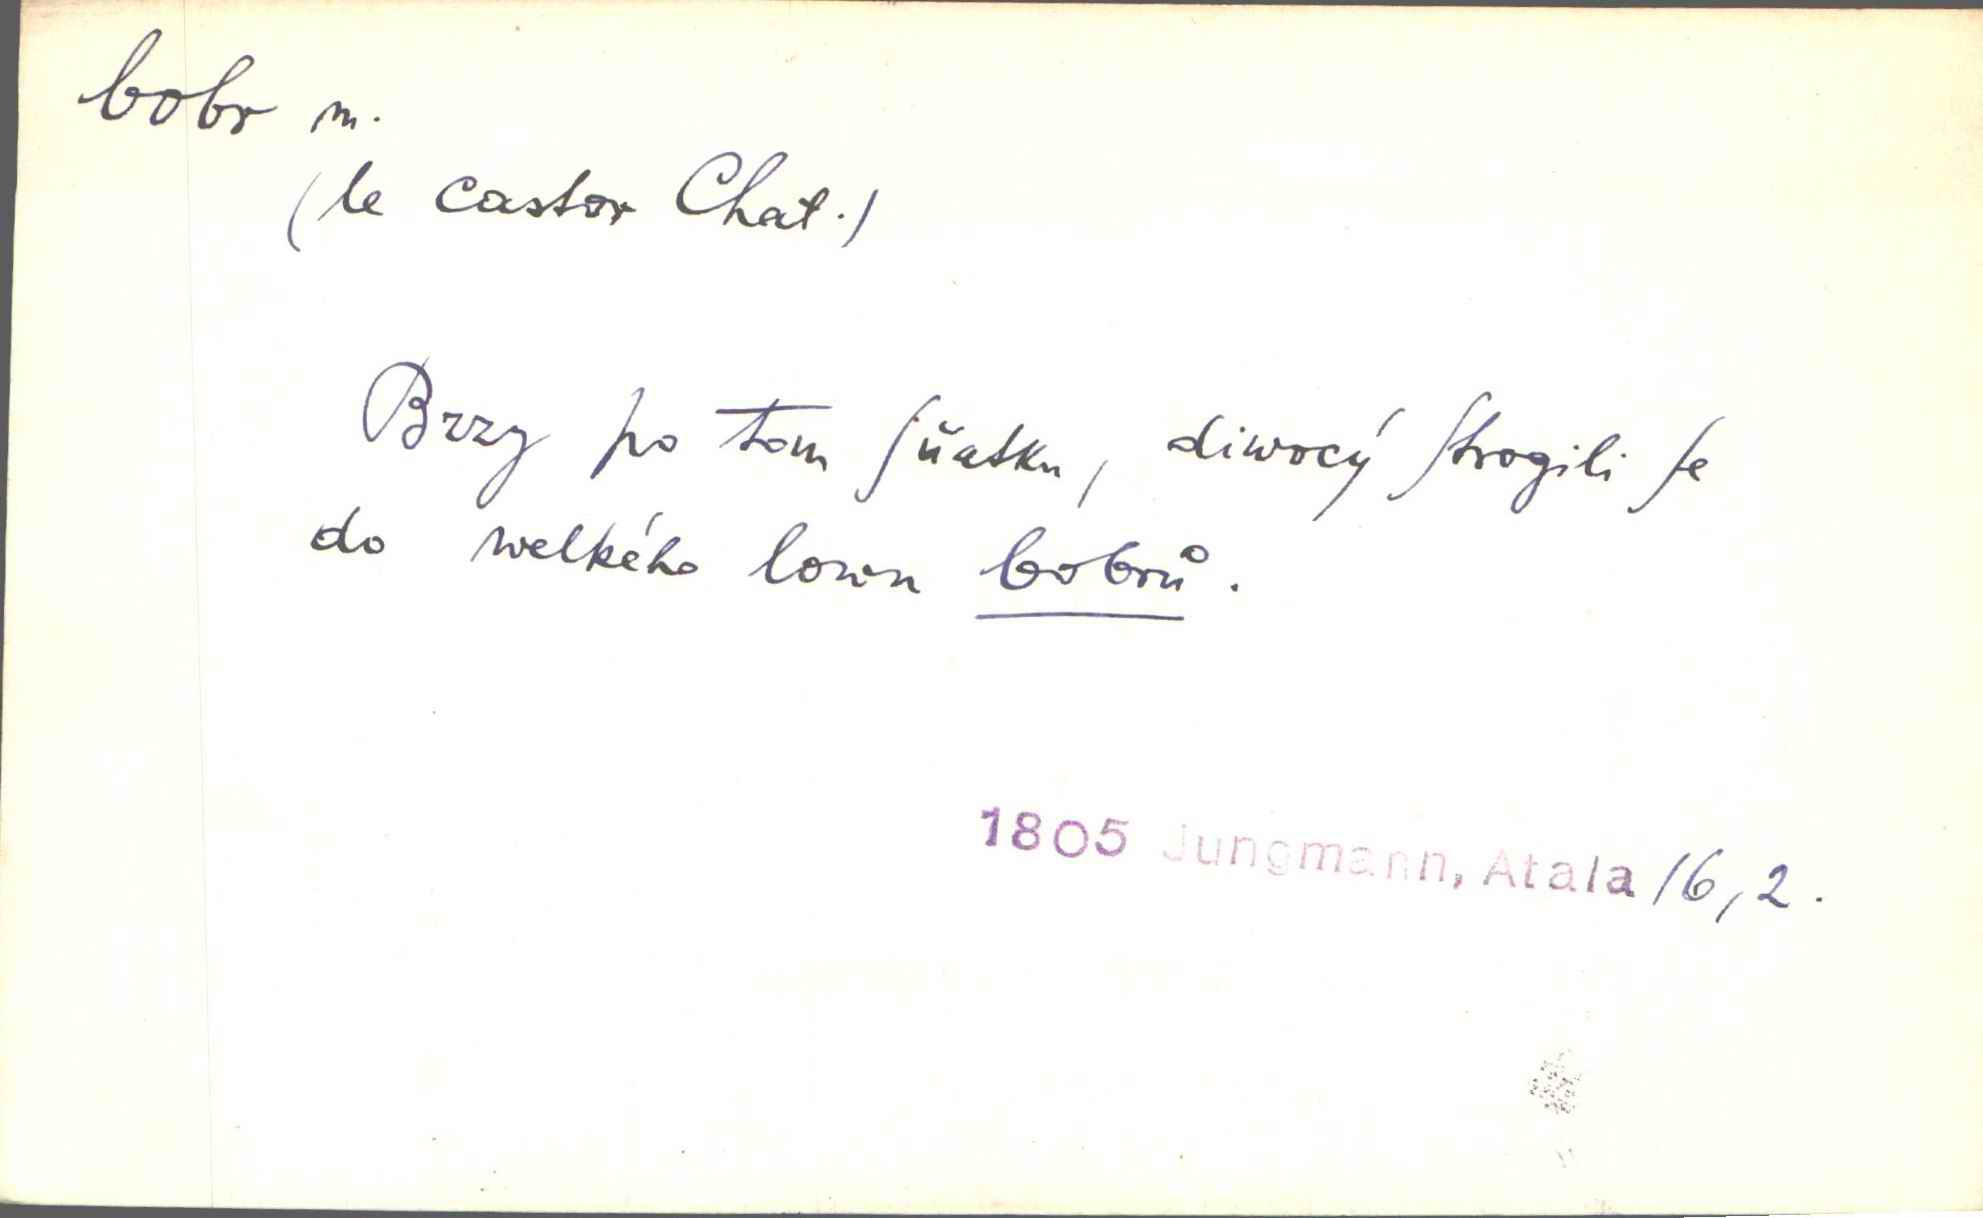 bobr m.
(le castor Chat.)
Brzy po tom ſňatku, diwocý ſtrogili ſe
do welkého lowu bobrů.
1805 Jungmann, Atala 16,2.